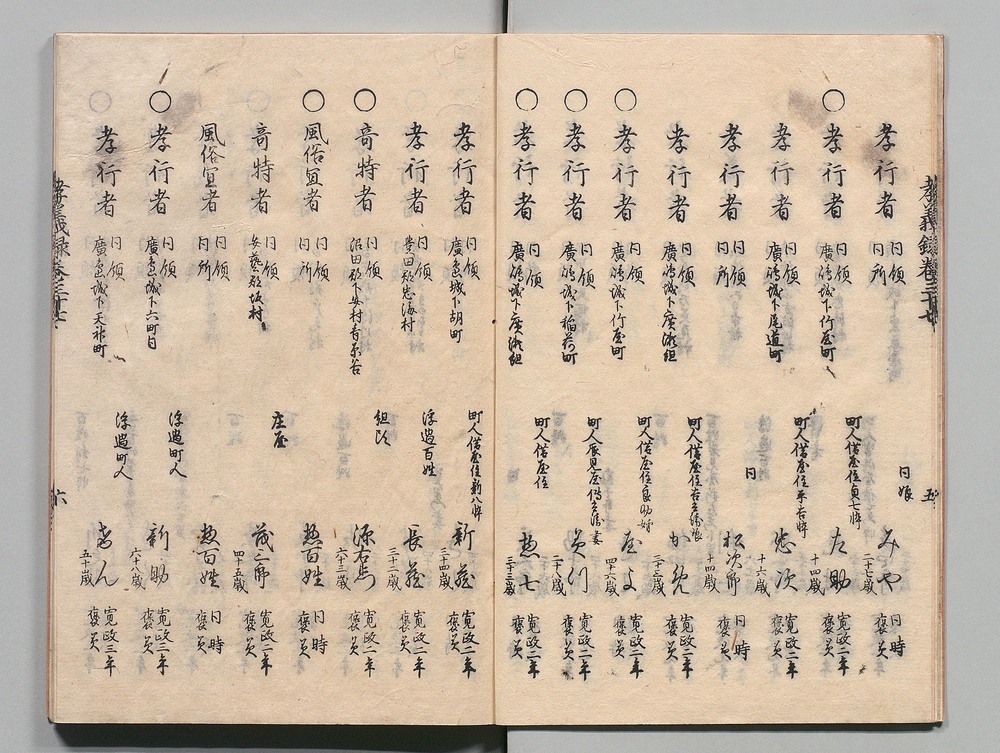 孝行者 同領同所 同娘 みや 二十七歳 同時褒美
○孝行者 同領廣嶋城下竹屋町 町人借屋住貞七悴 左助 十四歳 寛政二年褒美
孝行者 同領廣嶋城下尾道町 町人借屋住平右悴 忠次 十六歳 寛政二年褒美
孝行者 同領同所 同 松次郎 十四歳 同時褒美
孝行者 同領廣嶋城下廣瀬組 町人借屋住 寛政二年褒美
○孝行者 同領廣嶋城下竹屋町 町人借屋住 四十六歳 寛政二年褒美
○孝行者 同領廣嶋城下稲荷町 町人 妻 寛政二年褒美
○孝行者 同領廣嶋城下廣瀬組 町人借屋住 惣七 三十三歳 寛政二年褒美
孝義録巻三十七 五
孝行者 同領廣嶋城下胡町 町人借屋住新八悴 新蔵 三十四歳 寛政二年褒美
孝行者 同領豊田郡忠海村 浮過百姓 長蔵 三十二歳 寛政二年褒美
○奇特者 同領沼田郡下安村 組頭 源右衛 六十三歳 寛政二年褒美
○風俗宜者 同領同所 惣百姓 同時褒美
奇特者 同領安藝郡坂村 庄屋 茂三郎 四十五歳 寛政二年褒美
風俗宜者 同領同所 惣百姓 同時褒美
○孝行者 同領廣嶋城下六町目 浮過町人 新助 六十八歳 寛政三年褒美
孝行者 同領廣嶋城下天神町 浮過町人 五十歳 寛政三年褒美
孝義録巻三十七 六